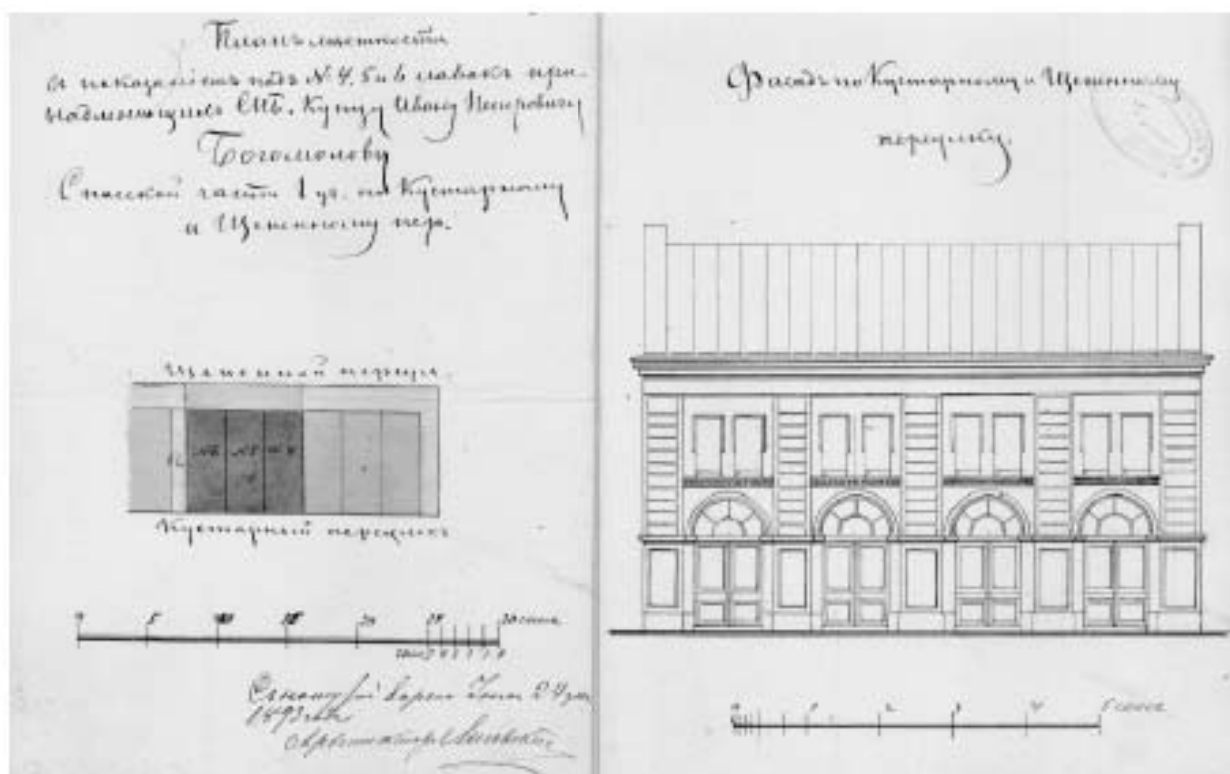 Планъ мѣстности
съ показаніемъ подъ № 4, 5 и 6 лавокъ при-
надлежащихъ СПб. Купцу Ивану Петровичу
Богомолову
Спасской части 1 уч. по Кустарному
и Щепенному пер.
Щепенной переул.
№6 №5 №4
Кустарный переулокъ
0 5 10 15 20 25 30 саже
24 дня
1893 года
Архитекторъ
Фасадъ по Кустарному и Щепенному
переулку.
0 1 2 3 4 5 саже